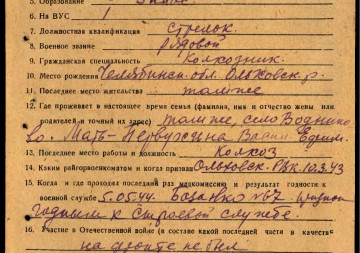 5. Образование
6. На ВУС 1
7. Должностная квалификация Стрелок.
8. Военное звание Рядовой
9. Гражданская специальность Колхозник.
10. Место рождения Челябинск. обл. Ольховск. р.
11. Последнее место жительства там же
12. Где проживает в настоящее время семья (фамилия, имя и отчество жены или
родителей и точный адрес) там же, село
Мать-Первухина Ефим.
13. Последнее место работы и должность Колхоз
14. Каким райгорвоенкоматом и когда призван Ольховск. РВК 10.3.43
15. Когда и где проходил последний раз медкомиссию и результат годности к
военной службе 5.05.44. №
годным к строевой службе.
16. Участие в Отечественной войне (в составе какой последней части в качестве
на фронте не был